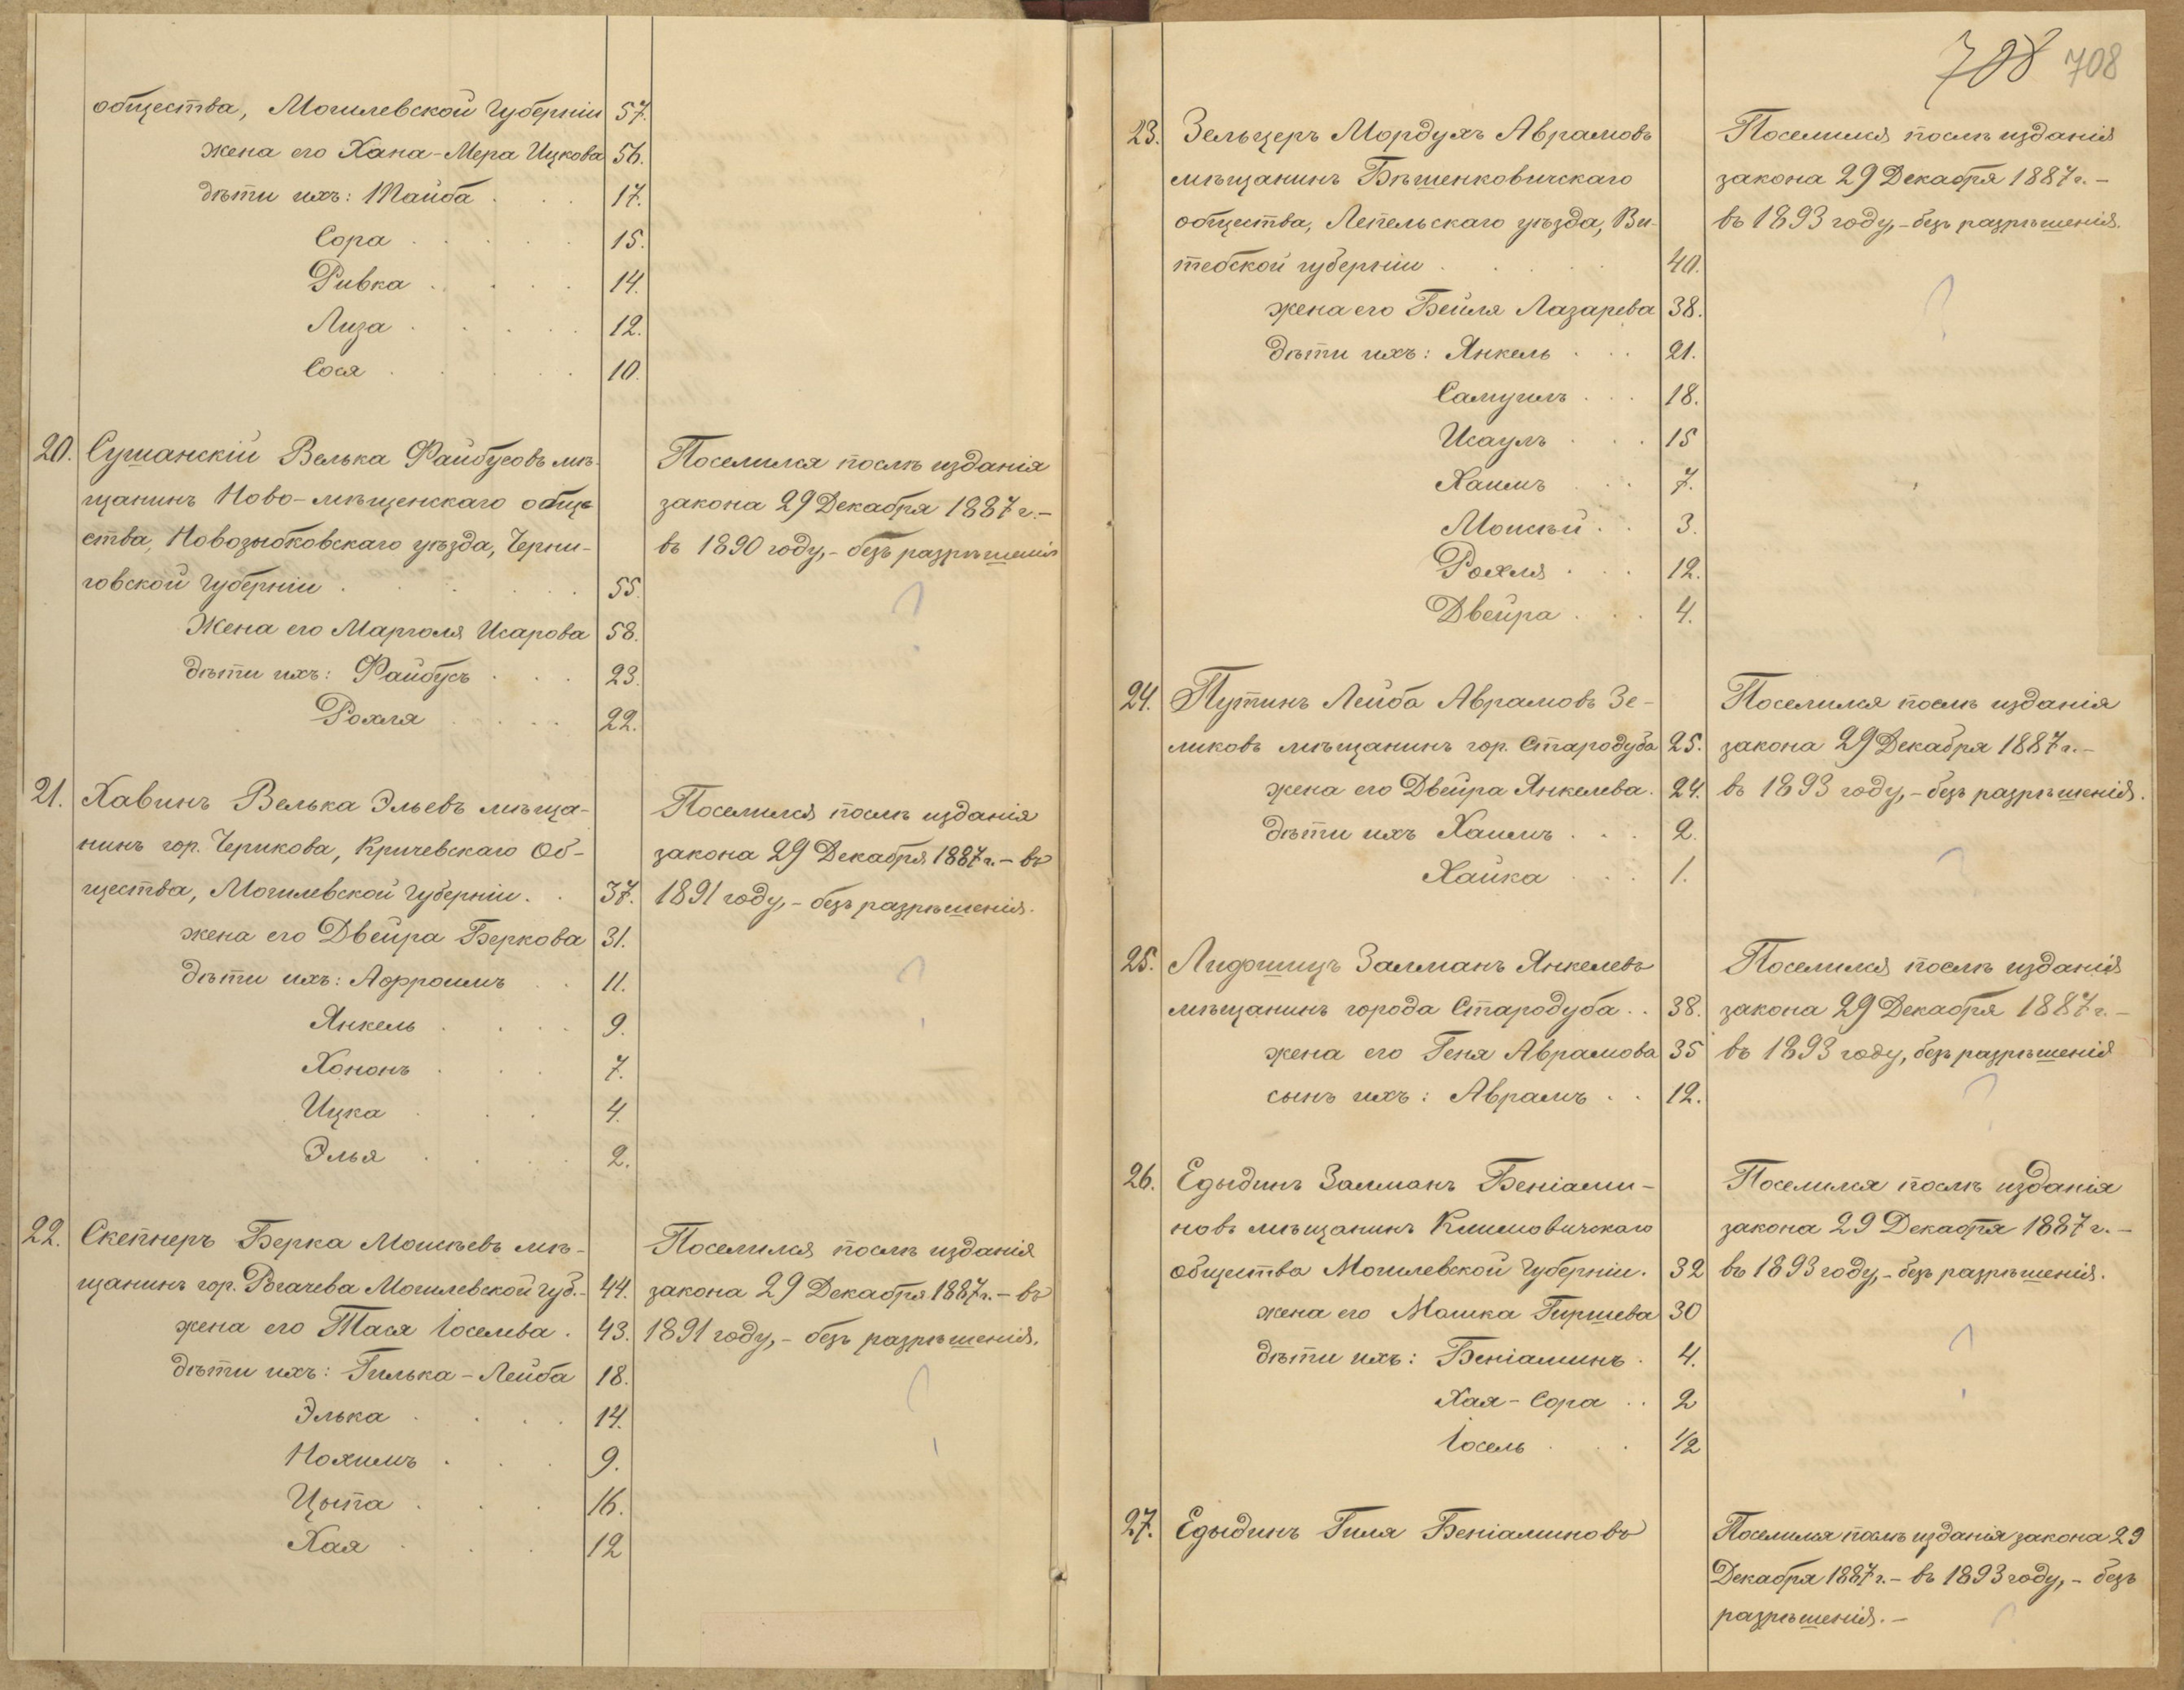 общества, Могилевской Губерніи 57.
жена его Хана-Мера Ицкова 56.
дѣти ихъ: Тайба . . . 17.
Сора . . . . . 15.
Ривка . . . . 14.
Лиза . . . . . 12.
Сося . . . . . 10.
20. Сушанскій Велька Файбусовъ мѣ-
щанинъ Ново-мѣщенскаго обще
ства, Новозыбковскаго уѣзда, Черни-
говской Губерніи . . . . . 55.
Жена его Марголя Исарова 58.
дѣти ихъ: Файбусъ . . . 23.
Рохля . . . . 22.
Поселился послѣ изданія
закона 29 Декабря 1887 г.-
въ 1890 году,- безъ разрѣшенія
21. Хавинъ Велька Эльевъ мѣща-
нинъ гор. Черикова, Кричевскаго Об-
щества, Могилевской Губерніи . . 37.
жена его Двейра Беркова 31.
дѣти ихъ: Афроимъ . . 11.
Янкель . . . . 9.
Хононъ . . . 7.
Ицка . . . 4.
Элья . . . . 2.
Поселился послѣ изданія
закона 29 Декабря 1887 г. - въ
1891 году,- безъ разрѣшенія.
22. Скепнеръ Берка Мошеѣвъ мѣ-
щанинъ гор. Рогачева Могилевской губ.- 44.
жена его Тася Іоселева . 43.
дѣти ихъ: Гилька-Лейба 18.
Элька . . . . 14.
Нохимъ . . . 9.
Цыпа . . . 16.
Хая . . . 12
Поселился послѣ изданія
закона 29 Декабря 1887 г. - въ
1891 году,- безъ разрѣшенія.
708 708
23. Зельцеръ Мордухъ Аврамовъ
мѣщанинъ Бѣшенковичскаго
общества, Лепельскаго уѣзда, Ви-
тебской губерніи . . . . 40.
жена его Бейля Лазарева 38.
дѣти ихъ: Янкель . . . 21.
Самуилъ . . . 18.
Исаулъ . . . 15
Хаимъ . . . 7.
Моисей . . 3.
Рохля . . . 12.
Двейра . . . 4.
Поселился послѣ изданія
закона 29 Декабря 1887 г. -
въ 1893 году,- безъ разрѣшенія.
24. Путинъ Лейба Аврамовъ Зе-
ликовъ мѣщанинъ гор. Стародуба 25.
жена его Двейра Янкелева . 24.
дѣти ихъ Хаимъ . . . 2.
Хайка . . . 1.
Поселился послѣ изданія
закона 29 Декабря 1887 г. -
въ 1893 году,- безъ разрѣшенія.
25. Лифшицъ Залманъ Янкелевъ
мѣщанинъ города Стародуба . . 38.
жена его Геня Аврамова 35
сынъ ихъ: Аврамъ . . 12.
Поселился послѣ изданія
закона 29 Декабря 1887 г. -
въ 1893 году, безъ разрѣшенія
26. Едыдинъ Залманъ Беніами-
новъ мѣщанинъ Климовичскаго
общества Могилевской Губерніи. 32
жена его Мошка Гиршева 30
дѣти ихъ: Беніаминъ . 4.
Хая-Сора . . 2
Іосель . . . 1/2
Поселился послѣ изданія
закона 29 Декабря 1887 г. -
въ 1893 году,- безъ разрѣшенія.
27. Едыдинъ Гиля Беніаминовъ
Поселился послѣ изданія закона 29
Декабря 1887 г. - въ 1893 году,- безъ
разрѣшенія.-